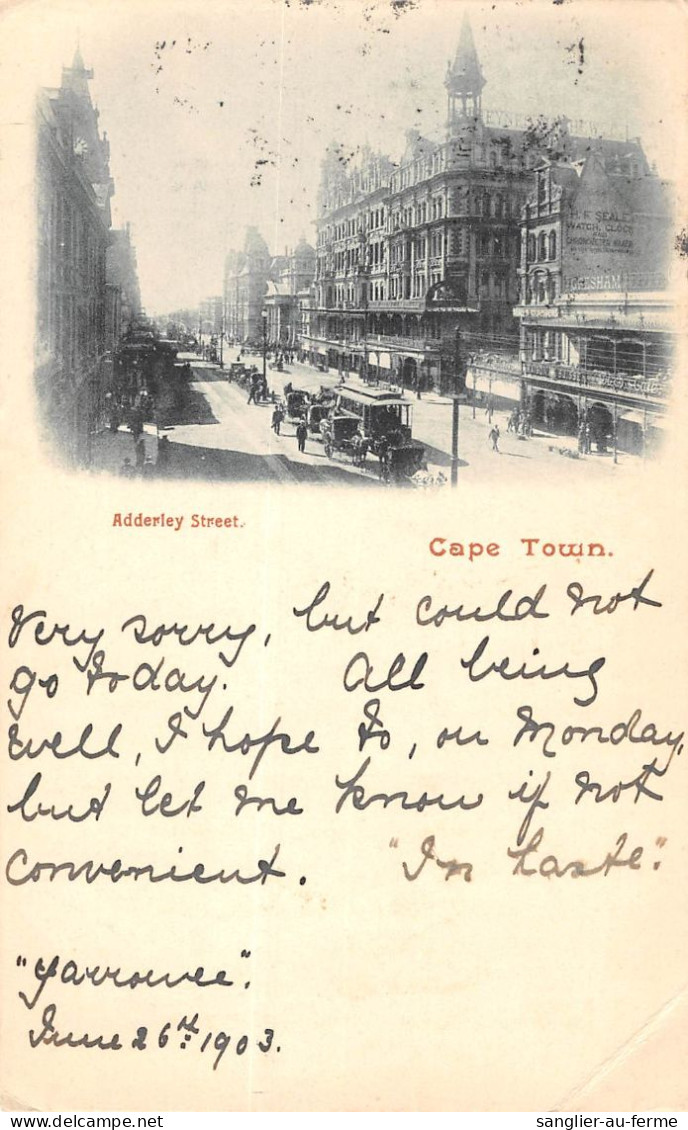 H. F. SEALE
WATCH, CLOCK
HORESHAM
Adderley Street.
Cape Town.
Very sorry, but could not
go today. All being
well, I hope to, on Monday,
but let me know if not
convenient. "In haste".
"Yarrowee".
June 26th 1903.
sanglier-au-ferme